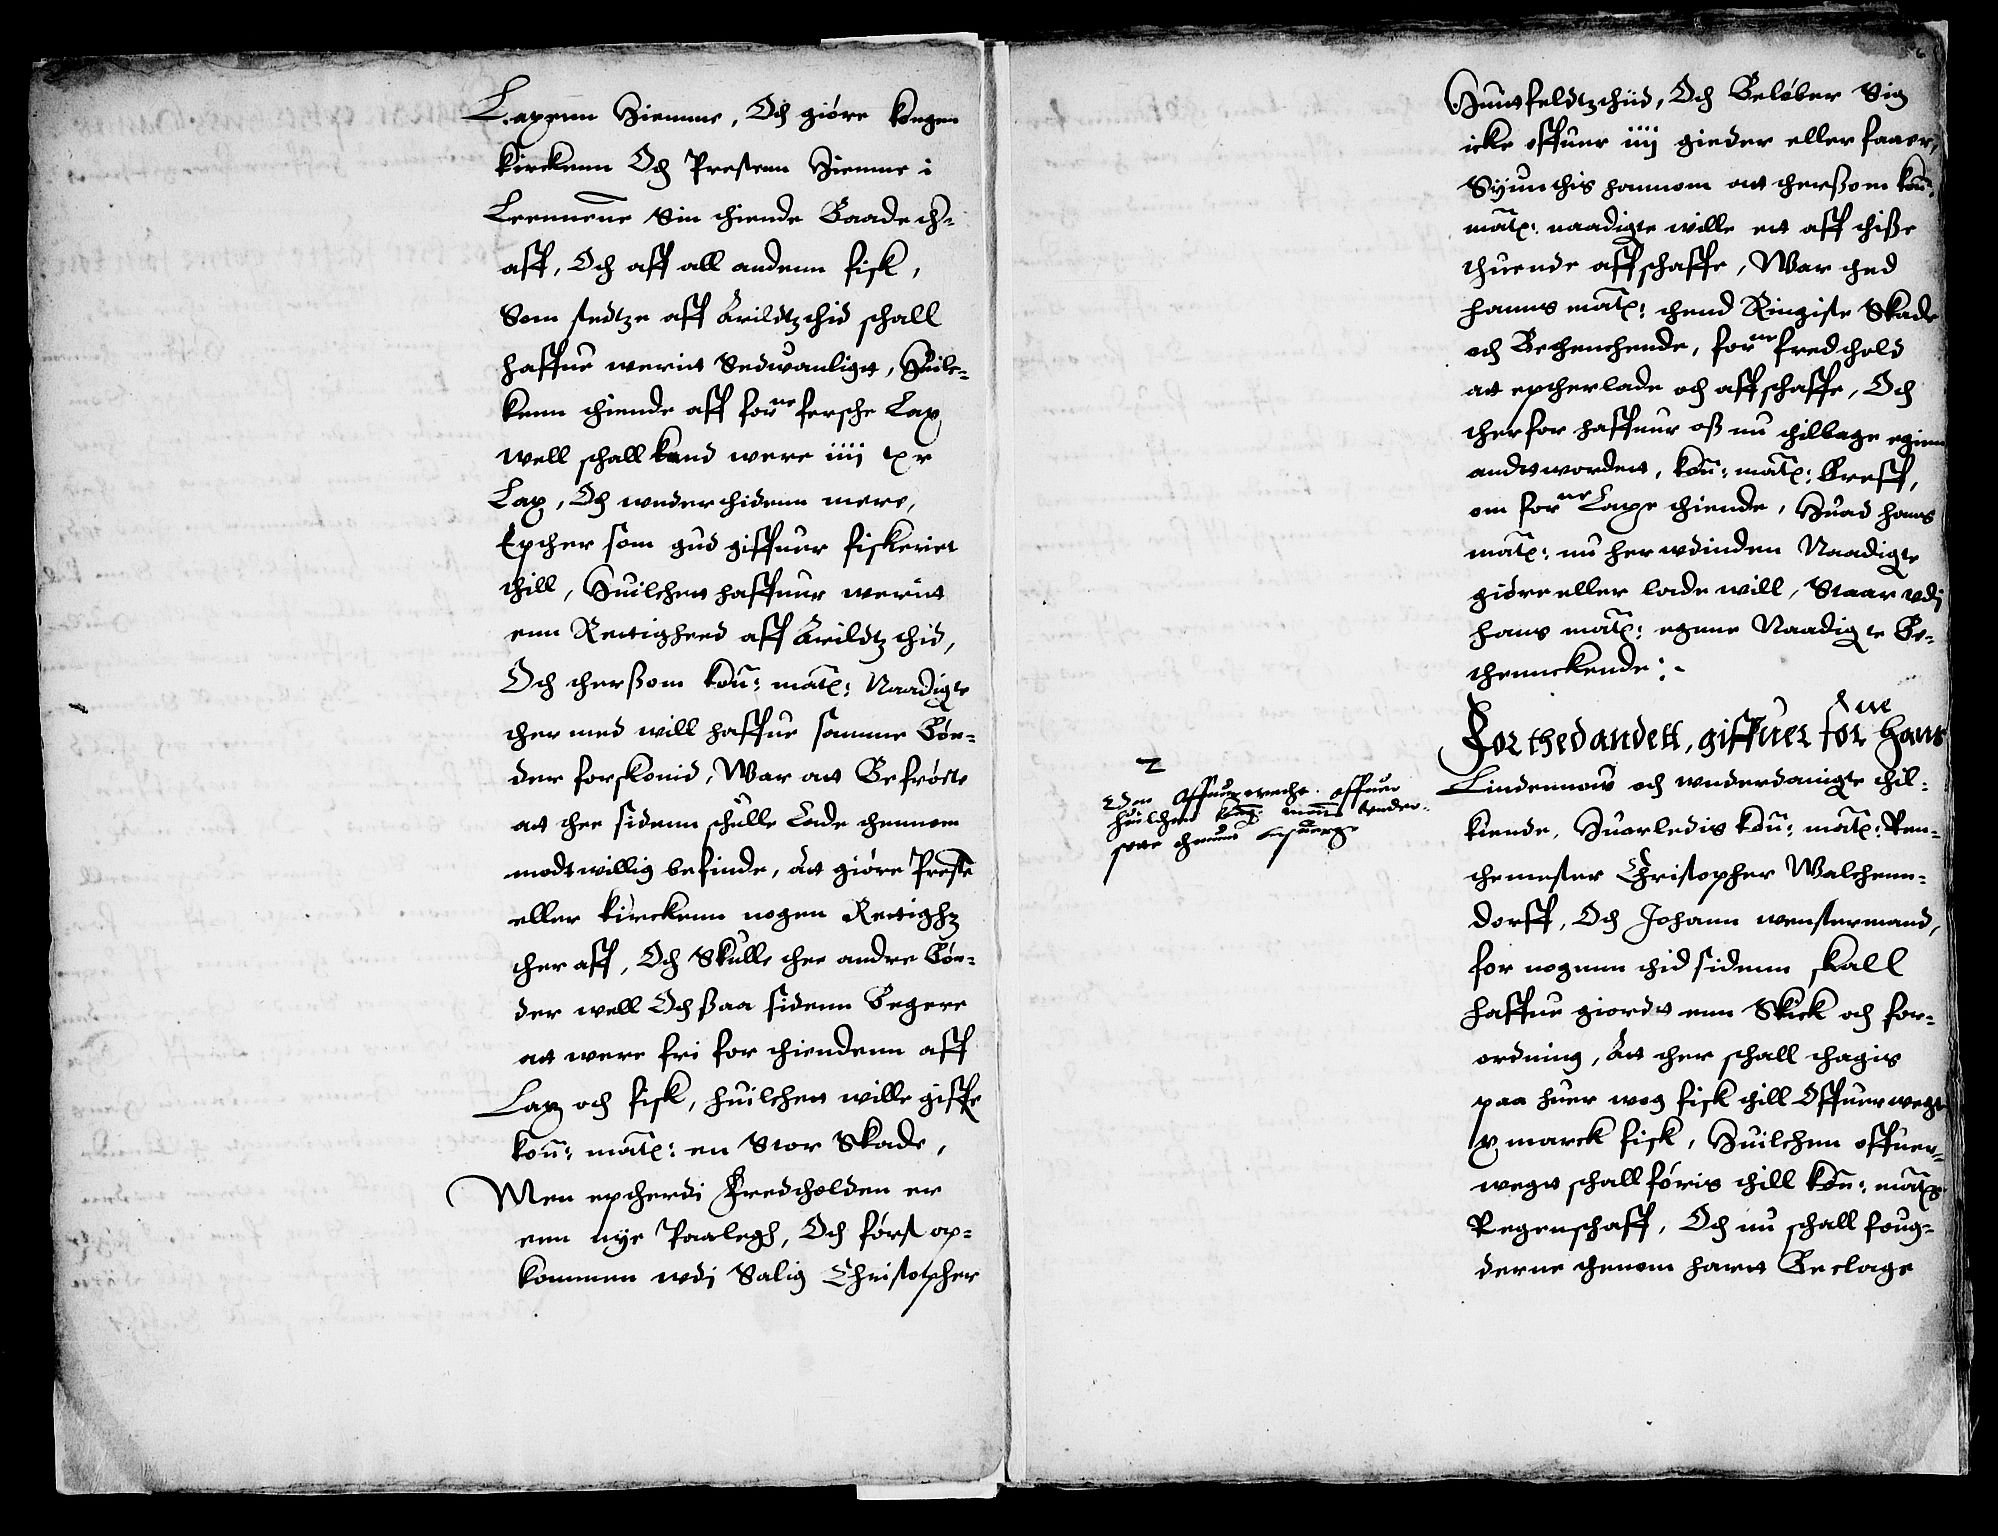 Laxenn Hiemme, Och giøre kongen
kirckenn Och Prestenn Hiemme i
Leennene Sin thiende Baade th-
aff, Och aff all andenn fisk,
Som stedtze aff Arildtz thid schall
haffue werit Sedwanligt, Huile-
kenn thiende aff for<sup>ne</sup> fersche Lax
well schall kand were iiij
Lax, Och wnderthidenn mere,
Epther som gud giffuer fiskeriet
thill, Huilchett haffuer werit
enn Rettigheed aff Arildtz thid,
Och thersom kon: matz: Naadigte
ther med will haffue samme Bøn-
der forskonid, War att Befrøcte
att thee sidenn schulle Lade thennom
modtwillig befinde, Att giøre Preste
eller kirckenn nogen Rettighz
ther aff, Och Skulle thee andre Bøn-
der well Och saa sidenn Begere
att were fri for thiendenn aff
Lax och fisk, huilchett wille giffe
kon: matz: en Stor Skade,
Men eptherdi Fredtholden er
enn nye Paalegh, Och først op-
kommen wdj Salig Christopher
Huitfeldtz thid, Och Beløber Sig
icke offuer iiij gieder eller faaer,
Syunthis hannom att thersom kon:
matz: naadigte wille ett aff thisse
thuende affschaffe, War thed
hanns matz: thend Ringiste Skade
och Bethenchende, for<sup>ne</sup> fredthold
att eptherlade och affschaffe, Och
therfor haffuer oss nu thilbage egienn
andtwordett, kon: matz: Breff,
om for<sup>ne</sup> Laxe thiende, Huad hans
matz: nu her wdinden Naadigte
giøre eller lade will, Staar wdj
hans matz: egene Naadigte Be-
thennckende:-
For thed andett, giffuer for<sup>ne</sup> Hans
Lindennow och wnderdanigte thil-
kiende, Huorledis kon: matz: Ren-
themester Christopher Walchenn-
dorff, Och Johann wenstermand,
for nogenn thid sidenn skall
haffue giordt enn Skick och for-
ordning, Att ther schall thagis
paa huer wog fisk thill Offuerwegt
marck fisk, Huilchen offuer-
wegt schall føris thill kon: matz:
Regenschaff, Och nu schall foug-
derne thenom hartt Beclage
2
offuer
huilchen